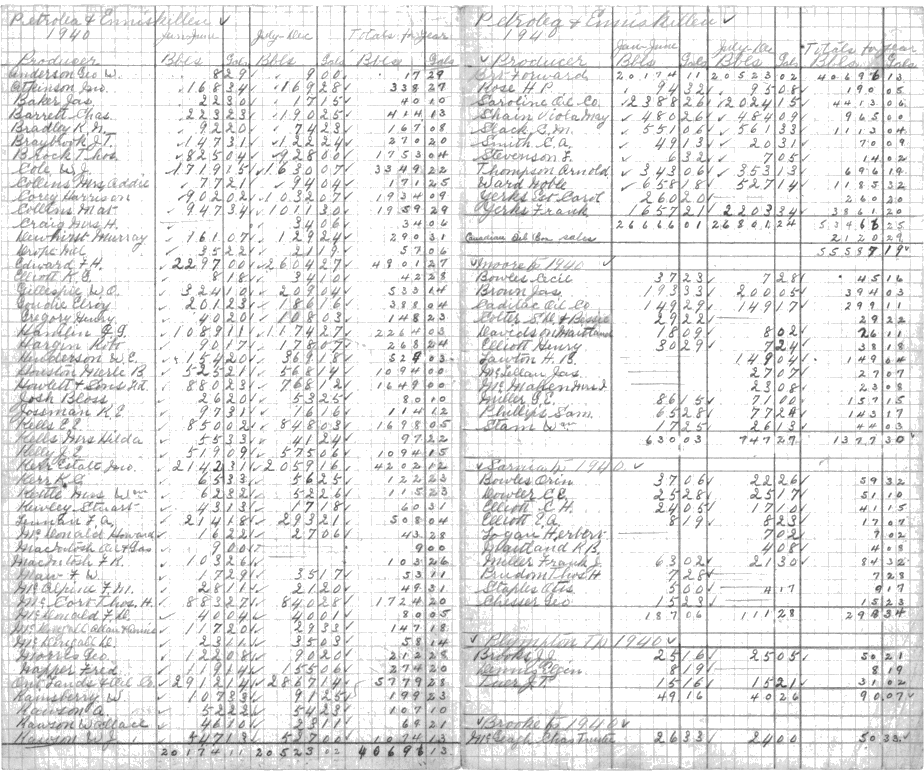 Petrolea & Enniskillen
1940
Jan-June July-Dec Totals for Year
Producer Bbls Gals Bbls Gals Bbls Gals
Anderson Geo W. 8 29 9 00 17 29
Atkinson Jno. 168 34 169 28 338 27
Baker Jas. 22 30 17 15 40 10
Barrett Chas. 223 23 190 25 414 13
Bradley R. N. 92 20 74 23 167 08
Braybrook J.T. 147 31 122 24 270 20
Brock Thos. 825 04 928 00 1753 04
Cole W.J. 1719 15 1630 07 3349 22
Collins Mrs Addie 77 21 94 04 171 25
Corey Harrison 902 02 1032 07 1934 09
Collins Mat 947 34 1011 30 1959 29
Craig Mrs H. 34 06 34 06
Dewhirst Murray 161 07 129 24 290 31
Drope Wm 35 22 21 19 57 06
Edward F.H. 2297 00 2604 27 4901 27
Elliott K.G. 8 18 34 10 42 28
Gillespie W.O. 324 10 209 04 533 14
Goudie Elroy 201 23 186 16 388 04
Gregory Henry 40 20 108 03 148 23
Hamlin F.J. 1089 11 1174 27 2264 03
Hargin Robt 90 17 178 07 268 24
Henderson W.E. 154 20 369 18 529 03
Houston Merle B 525 21 568 14 1094 00
Howlett & Sons Wt. 880 23 768 12 1649 00
Josh Bloss 26 20 53 25 80 10
Jossman R.E. 97 31 16 16 114 12
Kells E.E. 850 02 848 03 1698 05
Kells Mrs Hilda 55 33 41 24 97 22
Kelly J.E. 519 09 575 06 1094 15
Kerr Estate Jno. 2142 31 2059 16 4202 12
Kerr R.G. 65 33 56 25 122 23
Kettle Mrs Wm 62 32 52 26 115 23
Kinley Stuart 43 13 17 18 60 31
Lannan F.A. 214 18 293 21 508 04
McDonald Howard 16 22 27 06 43 28
Macintosh Oil & Gas 9 00 9 00
MacIntosh F.R. 103 26 103 26
Maw F W. 17 29 35 17 53 11
McAlpine F.M. 28 11 21 20 49 31
McCort Thos. H. 883 27 840 28 1724 20
McDonald F.D. 40 04 40 01 80 05
117 20 29 33 147 18
23 11 35 03 58 14
Morris Geo. 122 08 90 20 212 28
Napper Fred 119 14 155 06 274 20
Ont Lands & Oil Co. 2912 14 2867 14 5779 28
Rainsberry W. 107 33 91 25 199 23
Rawson A. 52 22 54 23 107 10
Rawson Wallace 46 10 23 11 69 21
Rawson W.J. 547 13 527 00 1074 13
20174 11 20523 02 40696 13
Petrolea & Enniskillen
1940
Jan-June July-Dec Totals for Year
Producer Bbls Gals Bbls Gals Bbls Gals
Brt Forward 20174 11 20523 02 40696 13
Rose H P. 94 32 95 08 190 05
Saroline Oil Co. 2388 26 2024 15 4413 06
Shain Viola May 480 26 484 09 965 00
Slack C.M. 551 06 561 33 1113 04
Smith C.A. 49 13 20 31 70 09
Stevenson F. 6 32 7 05 14 02
Thompson Arnold 343 06 353 13 696 19
Ward Noble 658 18 527 14 1185 32
Yerks Est Carol 260 20 260 20
Yerks Frank 1657 21 2203 34 3861 20
26666 01 26801 24 53468 25
Canadian Oil Con sales 2120 29
55587 19
Moore tp 1940
Bowles Cecil 37 23 7 28 45 16
Brown Jas. 193 33 200 05 394 03
Cadillac Oil Co 149 29 149 17 299 11
29 22 29 22
Davidson Maitland 18 09 8 02 26 11
Elliott Henry 30 29 7 24 38 18
Lawton H.B. 149 04 149 04
McLellan Jas. 27 07 27 07
McMahen 23 08 23 08
Miller G.E. 86 15 71 00 157 15
Phillips Sam. 65 28 77 24 143 17
Stam Wm 17 25 26 13 44 03
630 03 747 27 1377 30
Sarnia tp 1940
Bowles Orin 37 06 22 26 59 32
Dowler C.E. 25 28 25 17 51 10
Elliott C.H. 24 05 17 10 41 15
Elliott E.A. 8 19 8 23 17 07
Logan Herbert 7 02 7 02
Maitland R.B. 4 08 4 08
Miller Frank J. 63 02 21 30 84 32
Prudom Thos. H 7 28 7 28
Staples Otis 5 00 4 17 9 17
Chesser Geo 15 23 15 23
187 06 111 28 298 34
Plympton Tp 1940
Brooks J.J. 25 16 25 05 50 21
Dennis Elgin 8 19 8 19
15 16 15 21 31 02
49 16 40 26 90 07
Brooke tp 1940
McLeagh Chas Trustee 26 33 24 00 50 33